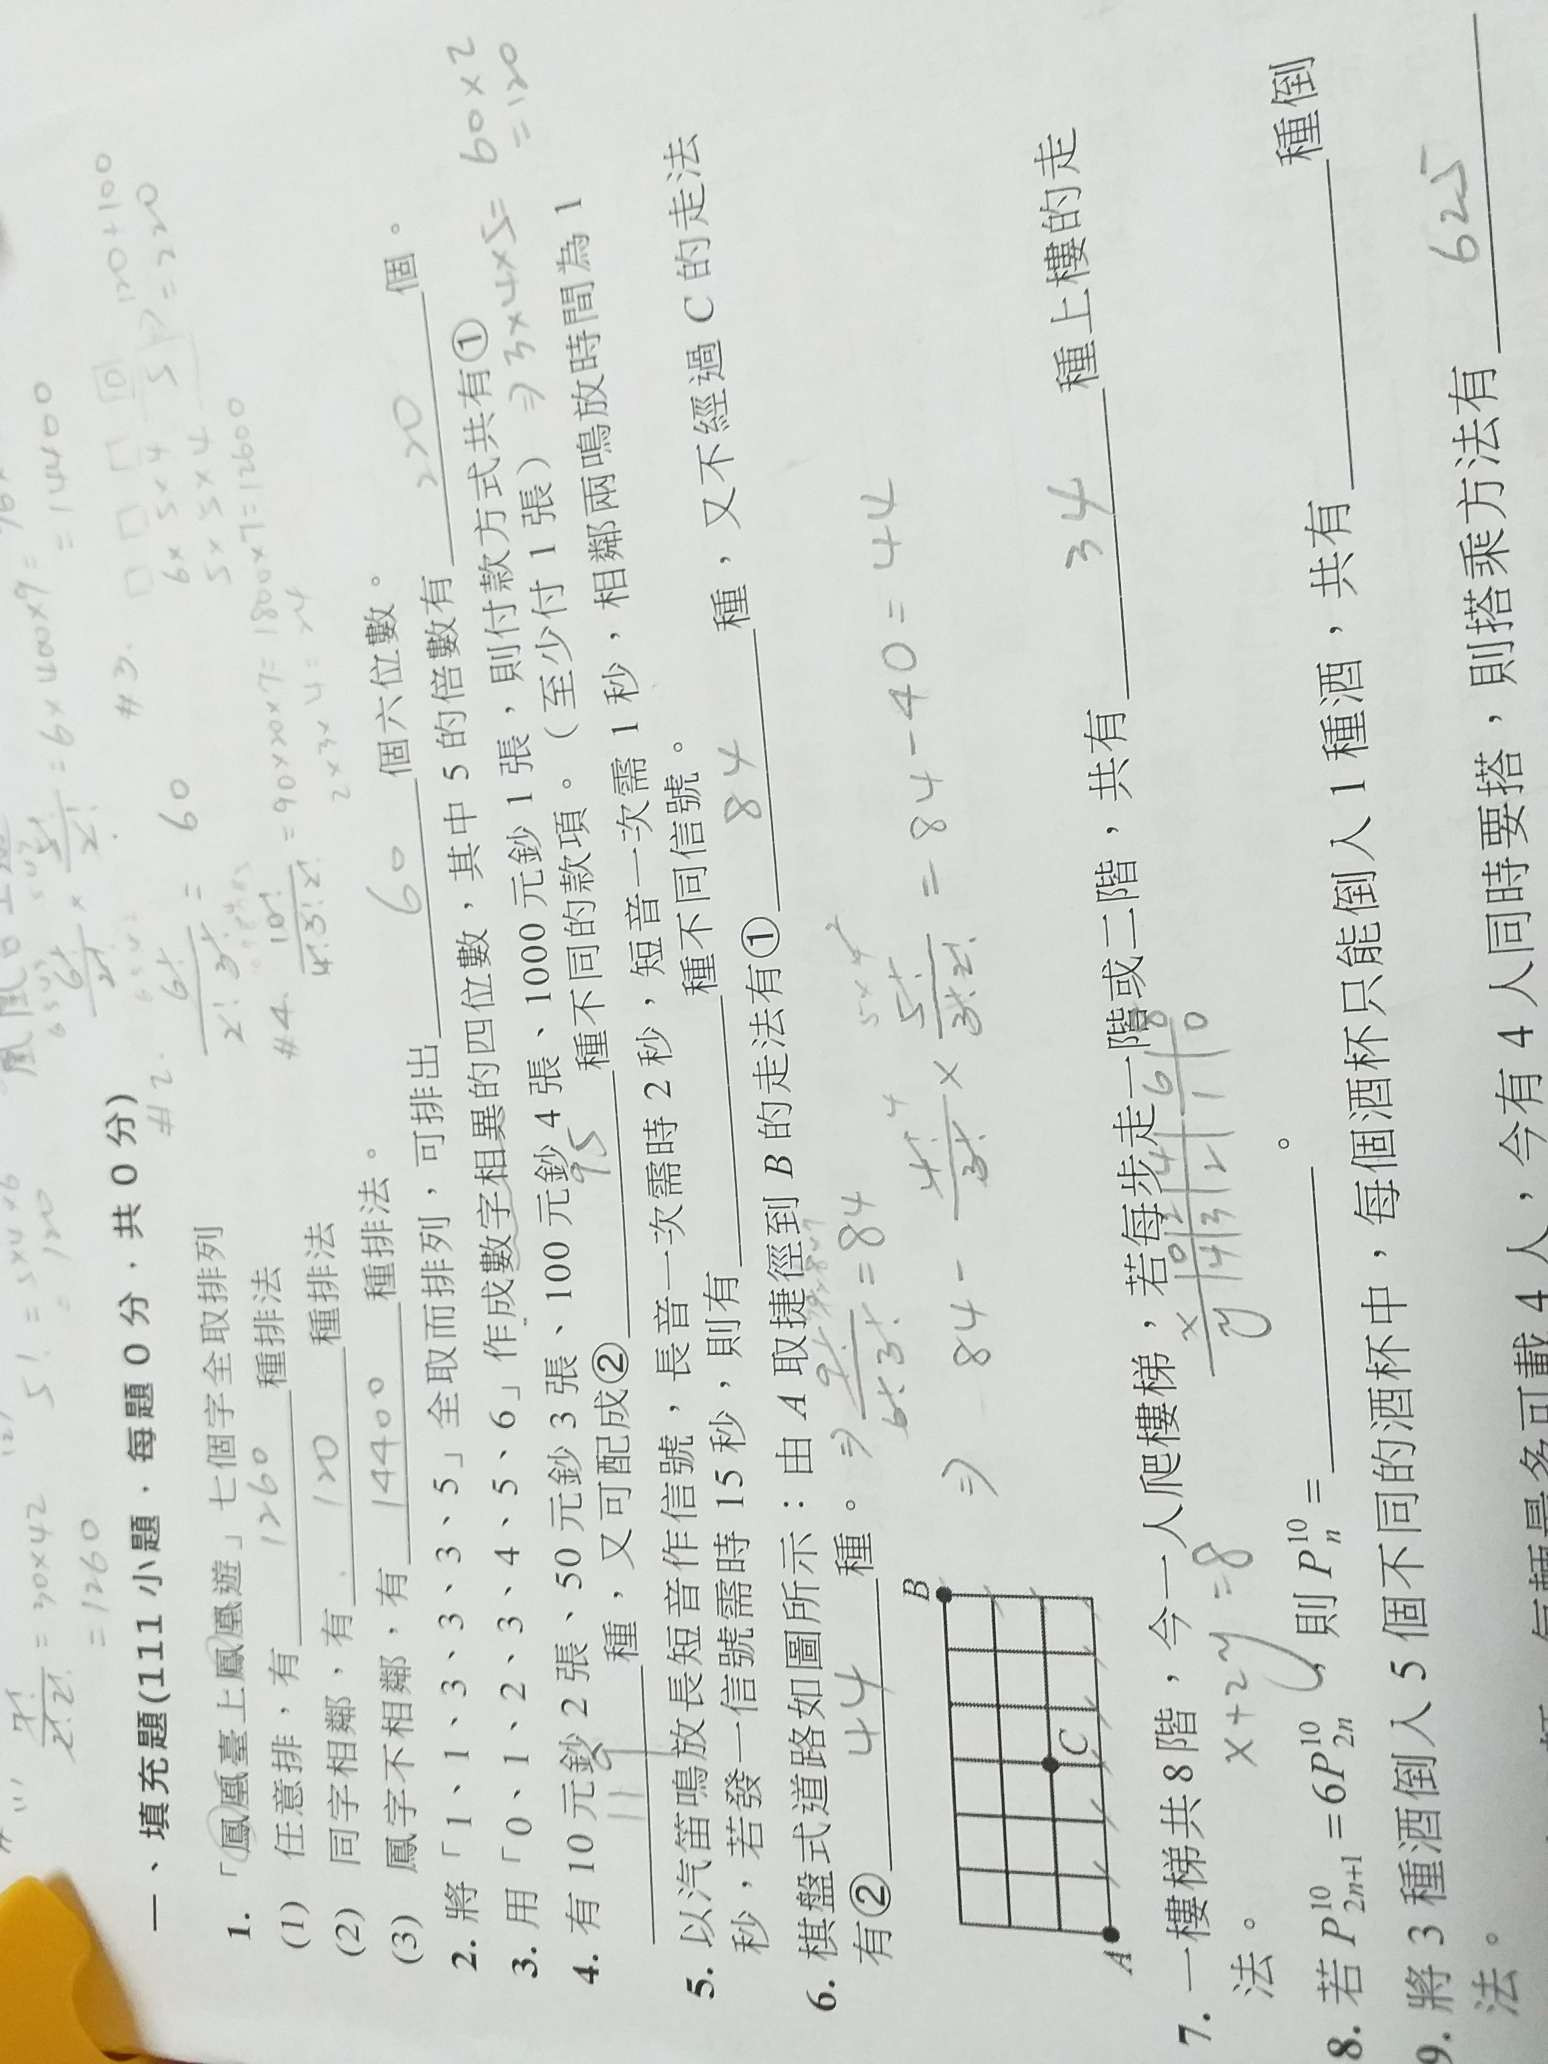 7!/2!2! = 30×42
= 1260
5! = 5×4×6
= 120
6!/2! × 5!/2! = 6×400×9 =
= 14400
一、填充題(111 小題．每題 0 分．共 0 分)
#2. 6!/2!3! = 60
#3. □ □ □ 回
6×5×4
5×5×4
120+100
=220
#4. 10!/4!3!2! = 90×20×7=1800×7=12600
2×3×4=24
1. 「鳳凰臺上鳳凰遊」七個字全取排列
(1) 任意排，有 1260 種排法
(2) 同字相鄰，有 120 種排法
(3) 鳳字不相鄰，有 14400 種排法。
2. 將「1、1、3、3、3、5」全取而排列，可排出 60 個六位數。
3. 用「0、1、2、3、4、5、6」作成數字相異的四位數，其中 5 的倍數有 220 個。
4. 有 10 元鈔 2 張、50 元鈔 3 張、100 元鈔 4 張、1000 元鈔 1 張，則付款方式共有①
11 種，又可配成② 95 種不同的款項。（至少付 1 張） ⇒ 3×4×5= 60×2
=120
5. 以汽笛鳴放長短音作信號，長音一次需時 2 秒，短音一次需 1 秒，相鄰兩鳴放時間為 1
秒，若發一信號需時 15 秒，則有 種不同信號。
6. 棋盤式道路如圖所示：由 A 取捷徑到 B 的走法有① 84 種，又不經過 C 的走法
有② 44 種。
⇒ 9!/6!3! = 84
⇒ 84 - 4!/3! × 5!/3!2! = 84-40=44
B
C
A
7. 一樓梯共 8 階，今一人爬樓梯，若每步走一階或二階，共有 34 種上樓的走
法。
x+2y=8
x 0 2 4 6 8
y 4 3 2 1 0
8. 若 P^10_2n+1 = 6P^10_2n，則 P^10_n = 。
9. 將 3 種酒倒入 5 個不同的酒杯中，每個酒杯只能倒入 1 種酒，共有 種倒
法。
4 人，今有 4 人同時要搭，則搭乘方法有 625